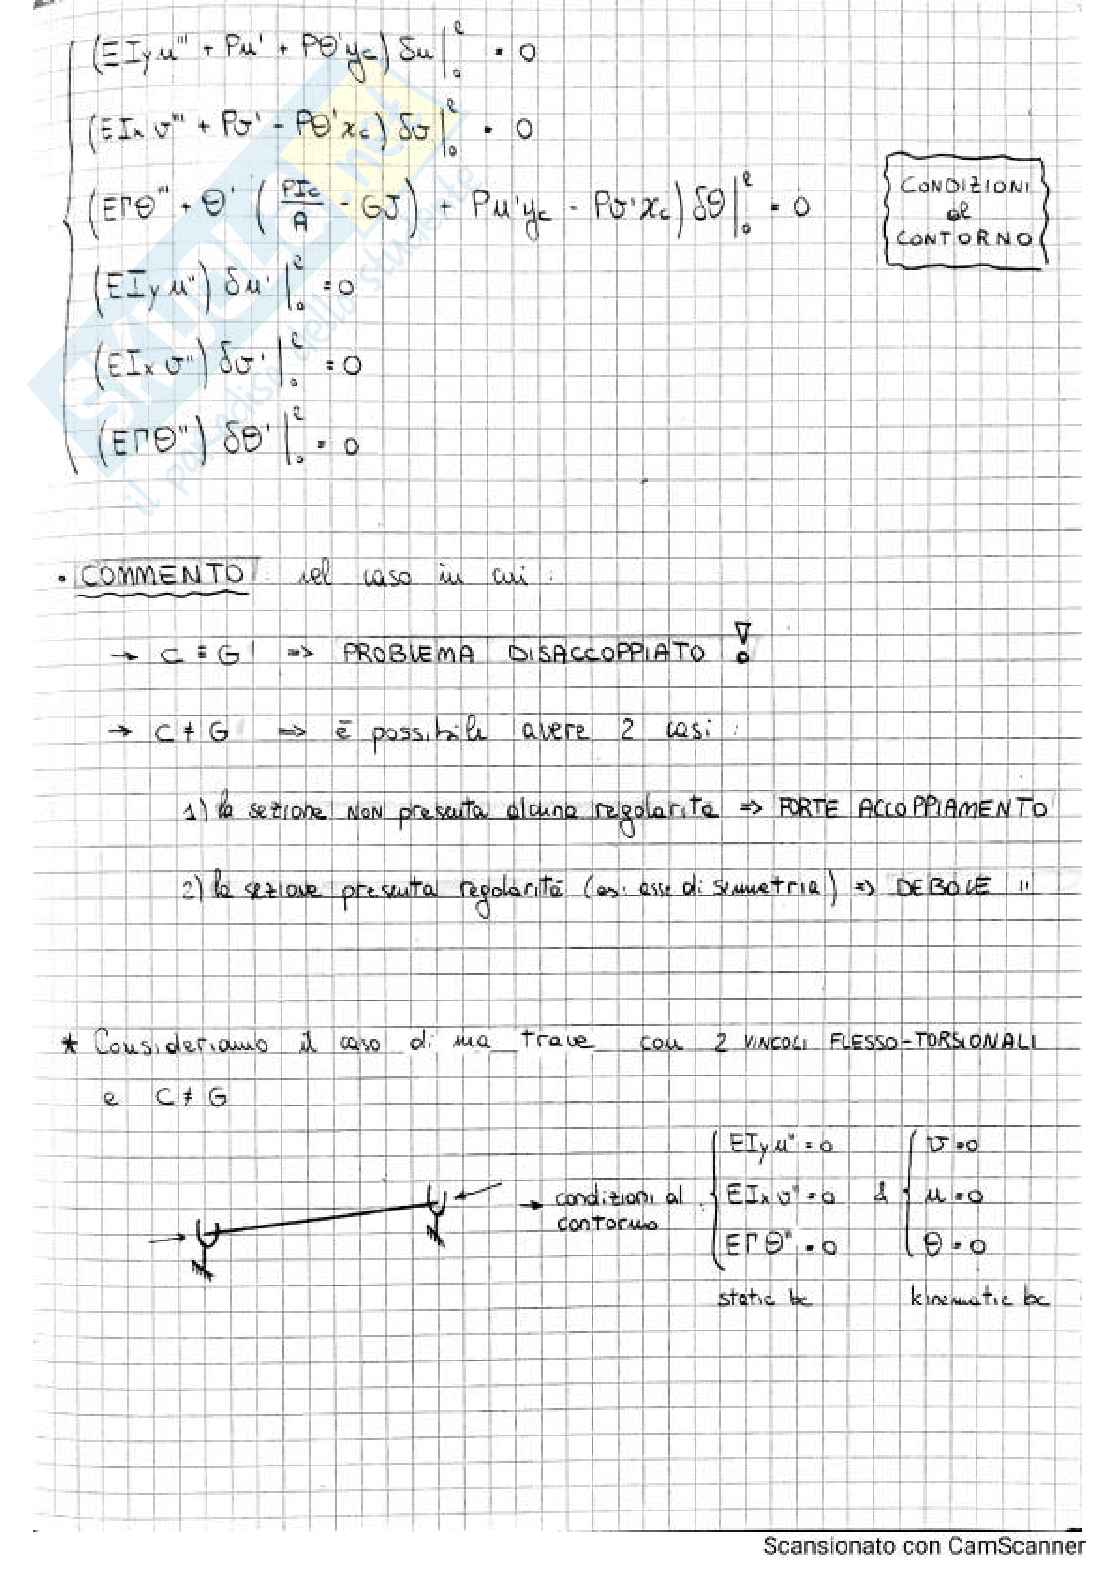 (EIy u''' + Pu' + Pθ'yc) δu |₀ˡ = 0
(EIx v''' + Pv' - Pθ'xc) δv |₀ˡ = 0
(EΓθ''' + θ' (PIc/A - GJ) + Pu'yc - Pv'xc) δθ |₀ˡ = 0
CONDIZIONI
al
CONTORNO
(EIy u'') δu' |₀ˡ = 0
(EIx v'') δv' |₀ˡ = 0
(EΓθ'') δθ' |₀ˡ = 0
• COMMENTO: nel caso in cui:
→ C ≡ G => PROBLEMA DISACCOPPIATO !
→ C ≠ G => è possibile avere 2 casi:
1) la sezione NON presenta alcuna regolarità => FORTE ACCOPPIAMENTO
2) la sezione presenta regolarità (es: asse di simmetria) => DEBOLE "
* Consideriamo il caso di una trave con 2 VINCOLI FLESSO-TORSIONALI
e C ≠ G
→ condizioni al contorno
EIy u'' = 0
EIx v'' = 0
EΓ θ'' = 0
static bc
&
v = 0
u = 0
θ = 0
kinematic bc
SKUOLA.net
il paradiso dello studente
Scansionato con CamScanner